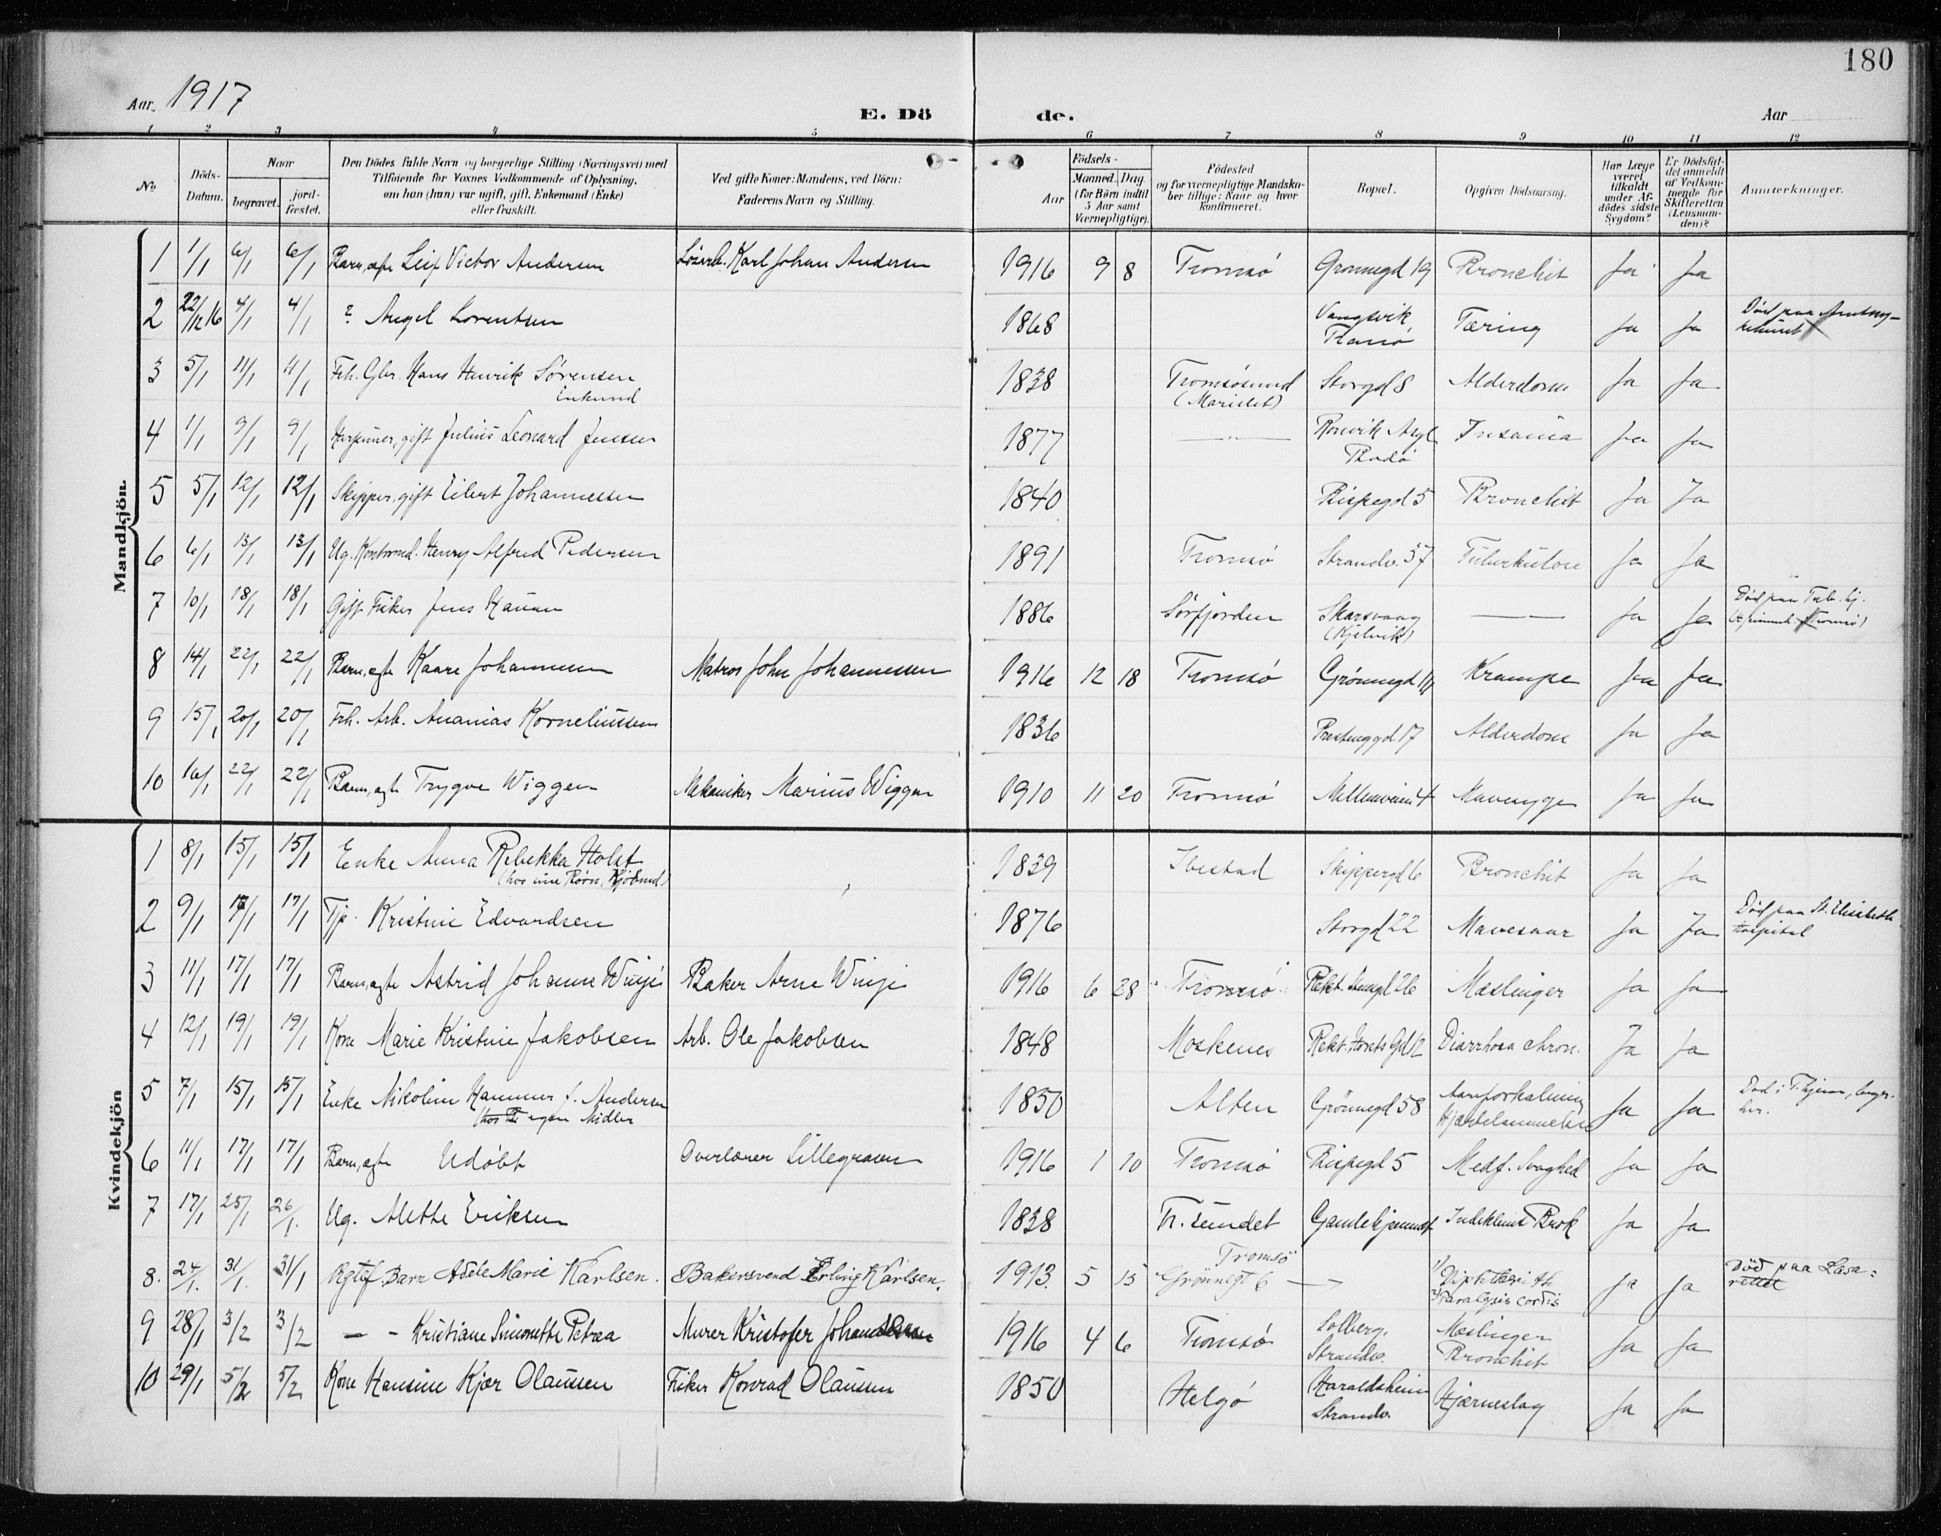 180
Aar 1917
E. Dö de.
Aar
1 2 3 4 5 6 7 8 9 10 11 12
No.
Döds-Datum.
Naar
begravet.
jord-fæstet.
Den Dödes fulde Navn og borgerlige Stilling (Næringsvei) med
Tilföiende for Voxnes Vedkommende af Oplysning,
om han (hun) var ugift, gift, Enkemand (Enke)
eller fraskilt.
Ved gifte Koner: Mandens, ved Börn:
Faderens Navn og Stilling.
Födsels-
Aar
Maaned. Dag.
(for Börn indtil
5 Aar samt
Værnepligtige).
Födested
og for værnepligtige Mandska-
ber tillige: Naar og hvor
konfirmeret.
Bopæl.
Opgiven Dödsaarsag.
Har Læge
været
tilkaldt
under Af-
dödes sidste
Sygdom?
Er Dödsfal-
det anmeldt
af Vedkom-
mende for
Skifteretten
(Lensman-
den)?
Anmærkninger.
Mandkjön.
1 1/1 6/1 6/1 Barn, ægte Leif Victor Andersen Karl Johan Andersen 1916 9 8 Tromsö Grønnegd 19 Bronchit Ja Ja
2 22/12 16 4/1 4/1 ? Angel Lorentsen 1868 Vangsvik, Tranø Tæring Ja Ja Død paa
3 5/1 11/1 11/1 Frh. Gbr. Hans Henrik Sørensen Enkemd 1838 Tromsøsund Storgd 8 Alderdom Ja Ja
4 1/1 9/1 9/1 Harpuner, gift Julius Leonard Jensen 1877 — " — Rønvik Asyl Bodø Insania Ja Ja
5 5/1 12/1 12/1 Skipper, gift Eilert Johannessen 1840 Bispegd 5 Bronchit Ja Ja
6 6/1 13/1 13/1 Ug. Kontormd. Henry Alfred Pedersen 1891 Tromsö Strandv. 57 Tuberkulose Ja Ja
7 10/1 18/1 18/1 Gift Fisker Jens Hansen 1886 Sørfjorden Skarsvaag (Kjelvik) — Ja Ja Død paa Tub. hj. Tromsø)
8 14/1 22/1 22/1 Barn, ægte Kaare Johannessen Matros John Johannessen 1916 12 18 Tromsö Grönnegd Krampe Ja Ja
9 15/1 20/1 20/1 Frh. Arb. Ananias Korneliussen 1836 17 Alderdom Ja Ja
10 16/1 22/1 22/1 Barn, ægte Trygve Wiggen Mekaniker Marius Wiggen 1910 11 20 Tromsö Mellemveien 4 Ja Ja
Kvindekjön
1 8/1 15/1 15/1 Enke Anna Rebekka Holst (hos sine Børn, 1839 Ibestad Skippergd 6 Bronchit Ja Ja
2 9/1 17/1 17/1 Tjp. Kristine Edvardsen 1876 Storgd 22 Mavesaar Ja Ja Død paa St. Elisabeth Hospital
3 11/1 17/1 17/1 Barn, ægte Astrid Johanne Winje Baker Arne Winje 1916 6 28 Tromsö 26 Mæslinger Ja Ja
4 12/1 19/1 19/1 Kone Marie Kristine Jakobsen Arb. Ole Jakobsen 1848 Moskenes Rekt. Horsts Gd 12 Diarrhoea chron. Ja Ja
5 7/1 15/1 15/1 Enke Nikoline Hammer f. Andersen egne Midler 1850 Alten Grönnegd 58 Aareforkalkning Hjertelammelse Ja Ja
6 11/1 17/1 17/1 Barn, ægte Udöbt Overlærer Lillegraven 1916 1 10 Tromsö Bispegd 5 Medf. Svaghed Ja Ja
7 17/1 25/1 26/1. Ug. Alette Eriksen 1838 Tr. sundet Gamlehjemmet Indeklemt Brok Ja Ja
8. 24/1. 31/1. 31/1 Ægtef. Barn Adele Marie Karlsen. Bakersvend Erling Karlsen. 1913. 5 15 Tromsö Grönnegt 6 — 1/ Diphtheri 2/ Paralysis cordis Ja Ja Död paa Lasa=rettet
9 28/1 3/2 3/2 — - Kristiane Simonette Petrea Murer Kristofer Johansen 1916 4 6 Tromsö Solberg, Strandv. Mæslinger Bronchit Ja Ja
10 29/1 5/2 5/2 Kone Hansine Kjær Olaussen Fisker Konrad Olaussen 1850 Helgö Haraldsheim Strandv. Hjærneslag Ja Ja